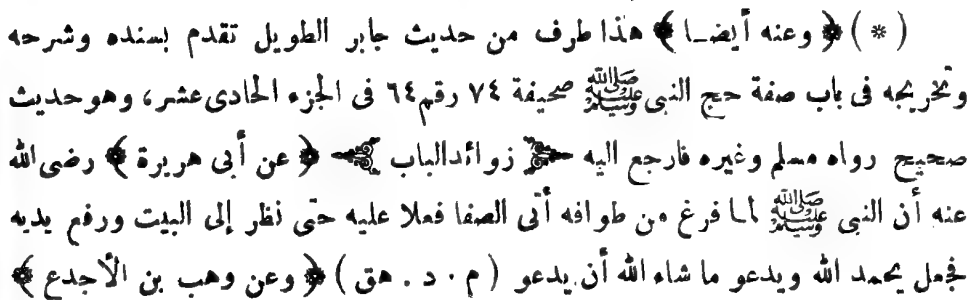 ( * ) ﴿ وعنه أيضـا ﴾ هذا طرف من حديث جابر الطويل تقدم بسنده وشرحه
وتخريجه فى باب صفة حج النبى ﷺ صحيفة ٧٤ رقم ٦٤ فى الجزء الحادى عشر، وهو حديث
صحيح رواه مسلم وغيره فارجع اليه زوائد الباب ﴿ عن أبى هريرة ﴾ رضى الله
عنه أن النبى ﷺ لما فرغ من طوافه أتى الصفا فعلا عليه حتى نظر إلى البيت ورفع يديه
فجعل يحمد الله ويدعو ما شاء الله أن يدعو ( م . د . هق ) ﴿ وعن وهب بن الأجدع ﴾